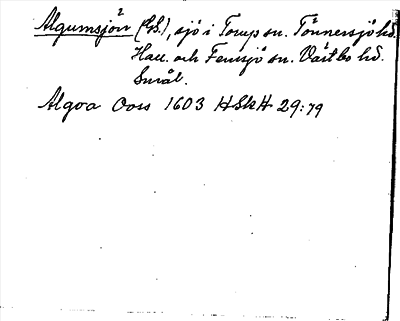 Algumsjön (GS.), sjö i Torup sn. Tönnersjö hd.
Hall. och Femsjö sn. Västbo hd.
Smål.
Algoa Oos 1603 HSkH 29:79